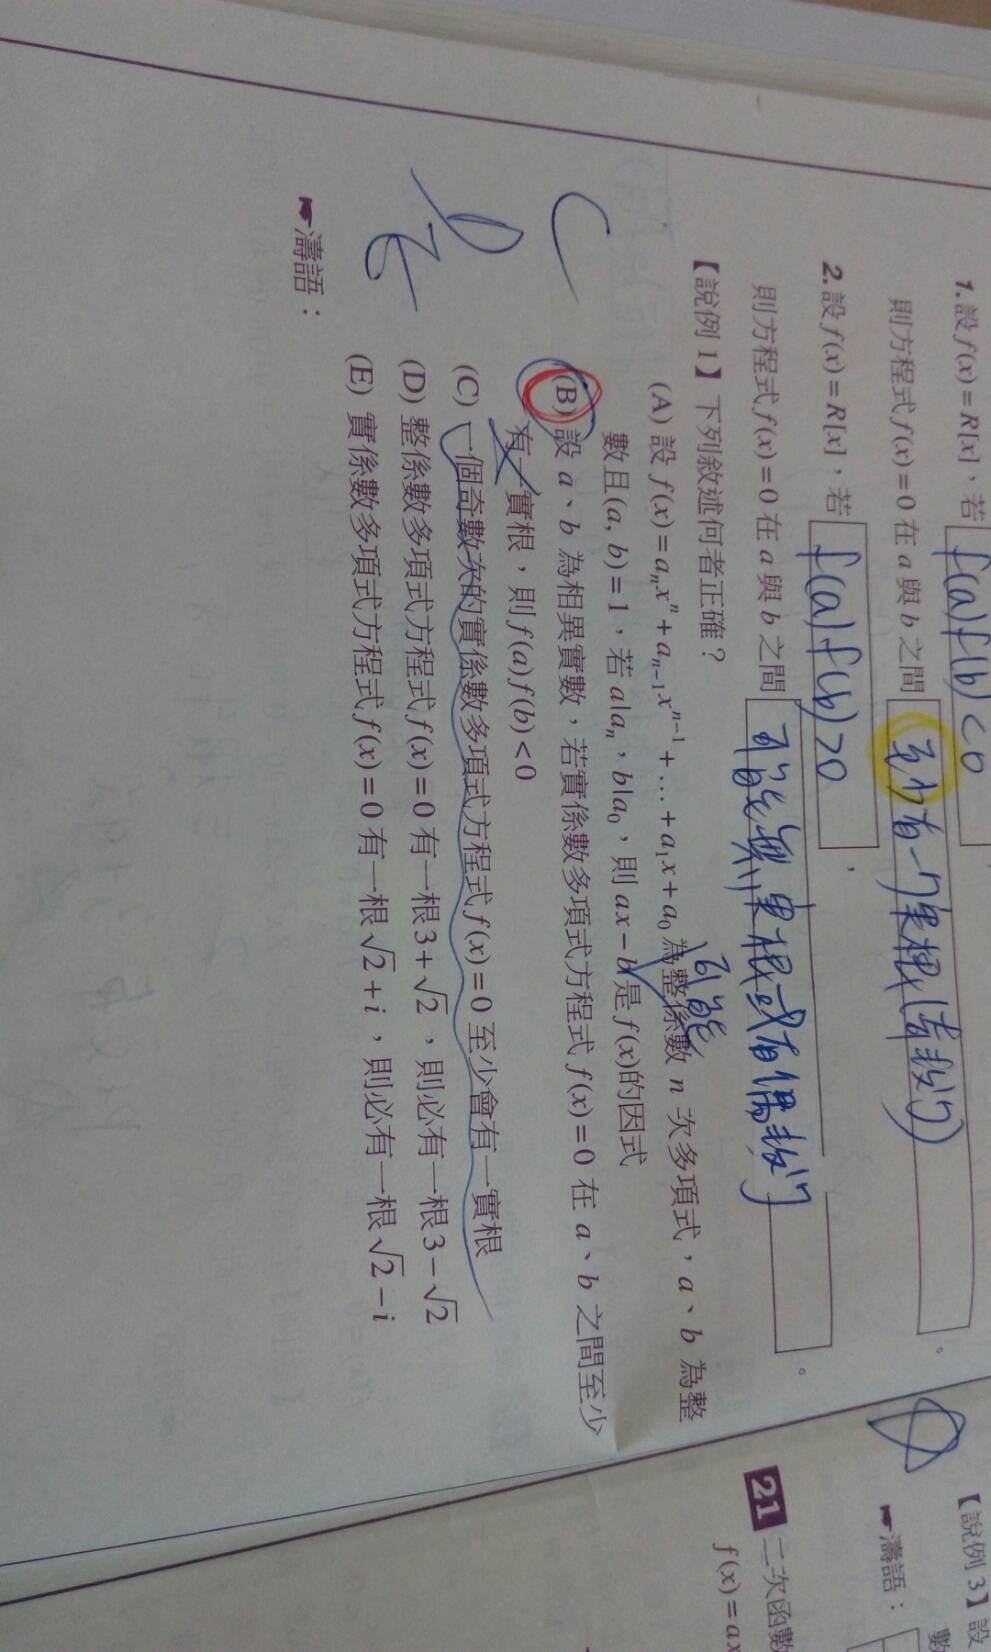 1.設f(x)=R[x],若 f(a)f(b)<0 ,
則方程式f(x)=0在a與b之間 至少有一個實根(奇數個) 。
2.設f(x)=R[x],若 f(a)f(b)>0 ,
則方程式f(x)=0在a與b之間 可能無實根或有偶數個 。
【說例1】下列敘述何者正確?
(A) 設f(x)=aₙxⁿ+aₙ₋₁xⁿ⁻¹+…+a₁x+a₀為整係數n次多項式,a、b為整
可能
數且(a, b)=1,若a|aₙ,b|a₀,則ax−b是f(x)的因式
(B) 設a、b為相異實數,若實係數多項式方程式f(x)=0在a、b之間至少
有一實根,則f(a)f(b)<0
(C) 一個奇數次的實係數多項式方程式f(x)=0至少會有一實根
(D) 整係數多項式方程式f(x)=0有一根3+√2,則必有一根3−√2
(E) 實係數多項式方程式f(x)=0有一根√2+i,則必有一根√2−i
C
D
E
☛濤語:
【說例3】設
數
☛濤語:
21 二次函數
f(x)=ax